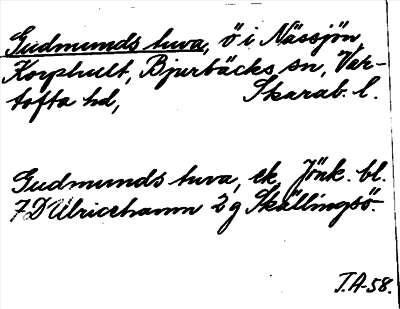 Gudmunds tuva, ö i Nässjön,
Korphult, Bjurbäcks sn, Var-
tofta hd, Skarab. l.
Gudmunds tuva, ek. Jönk. bl.
7D Ulricehamn 2g Skällingsö.
T.A-58.